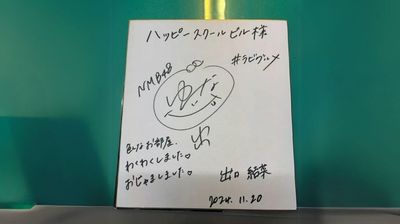 ハッピースクールビル様
#ラビヴィメ
NMB48
ゆいな
色んなお部屋、
わくわくしました。
おじゃましました。
出口 結菜
2024.11.20